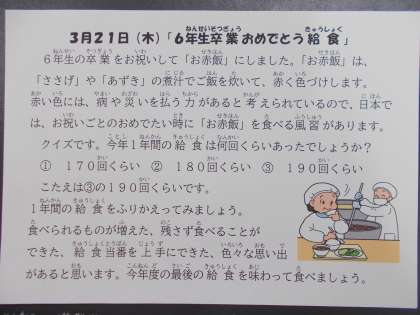 3月21日（木）「６年生卒業おめでとう給食」
６年生の卒業をお祝いして「お赤飯」にしました。「お赤飯」は、
「ささげ」や「あずき」の煮汁でご飯を炊いて、赤く色づけします。
赤い色には、病や災いを払う力があると考えられているので、日本で
は、お祝いごとのおめでたい時に「お赤飯」を食べる風習があります。
クイズです。今年１年間の給食は何回くらいあったでしょうか？
① １７０回くらい ② １８０回くらい ③ １９０回くらい
こたえは③の１９０回くらいです。
１年間の給食をふりかえってみましょう。
食べられるものが増えた、残さず食べることが
できた、給食当番を上手にできた、色々な思い出
があると思います。今年度の最後の給食を味わって食べましょう。